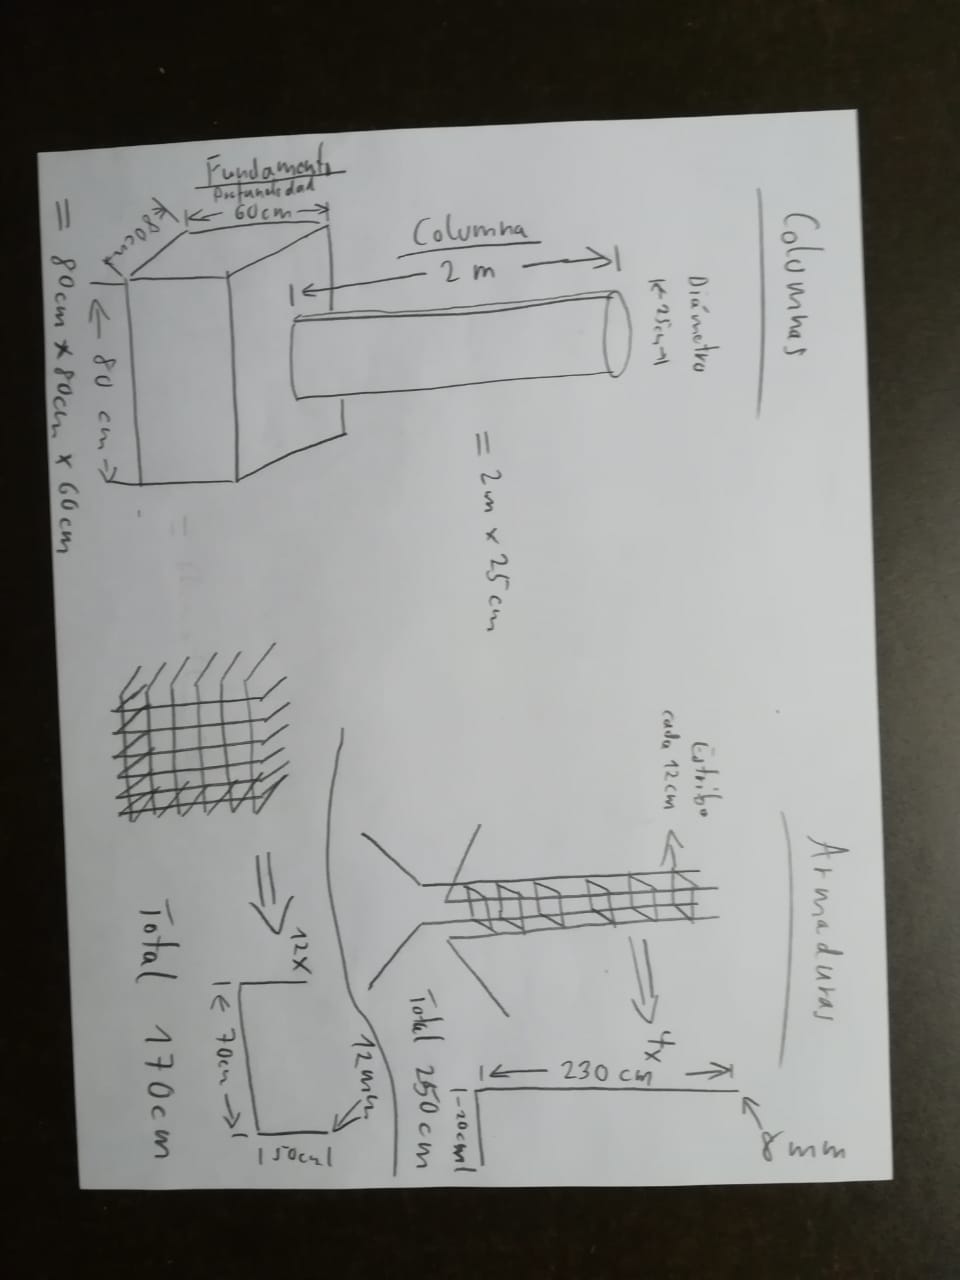 Columnas
Diámetro
25cm
Columna
2 m
= 2m x 25cm
Fundament
Profundidad
60cm
80cm
80 cm
= 80cm x 80cm x 60cm
Armaduras
Estribo
cada 12cm
4x
8 mm
230 cm
20cm
Total 250cm
12x
12mm
70cm
50cm
Total 170cm